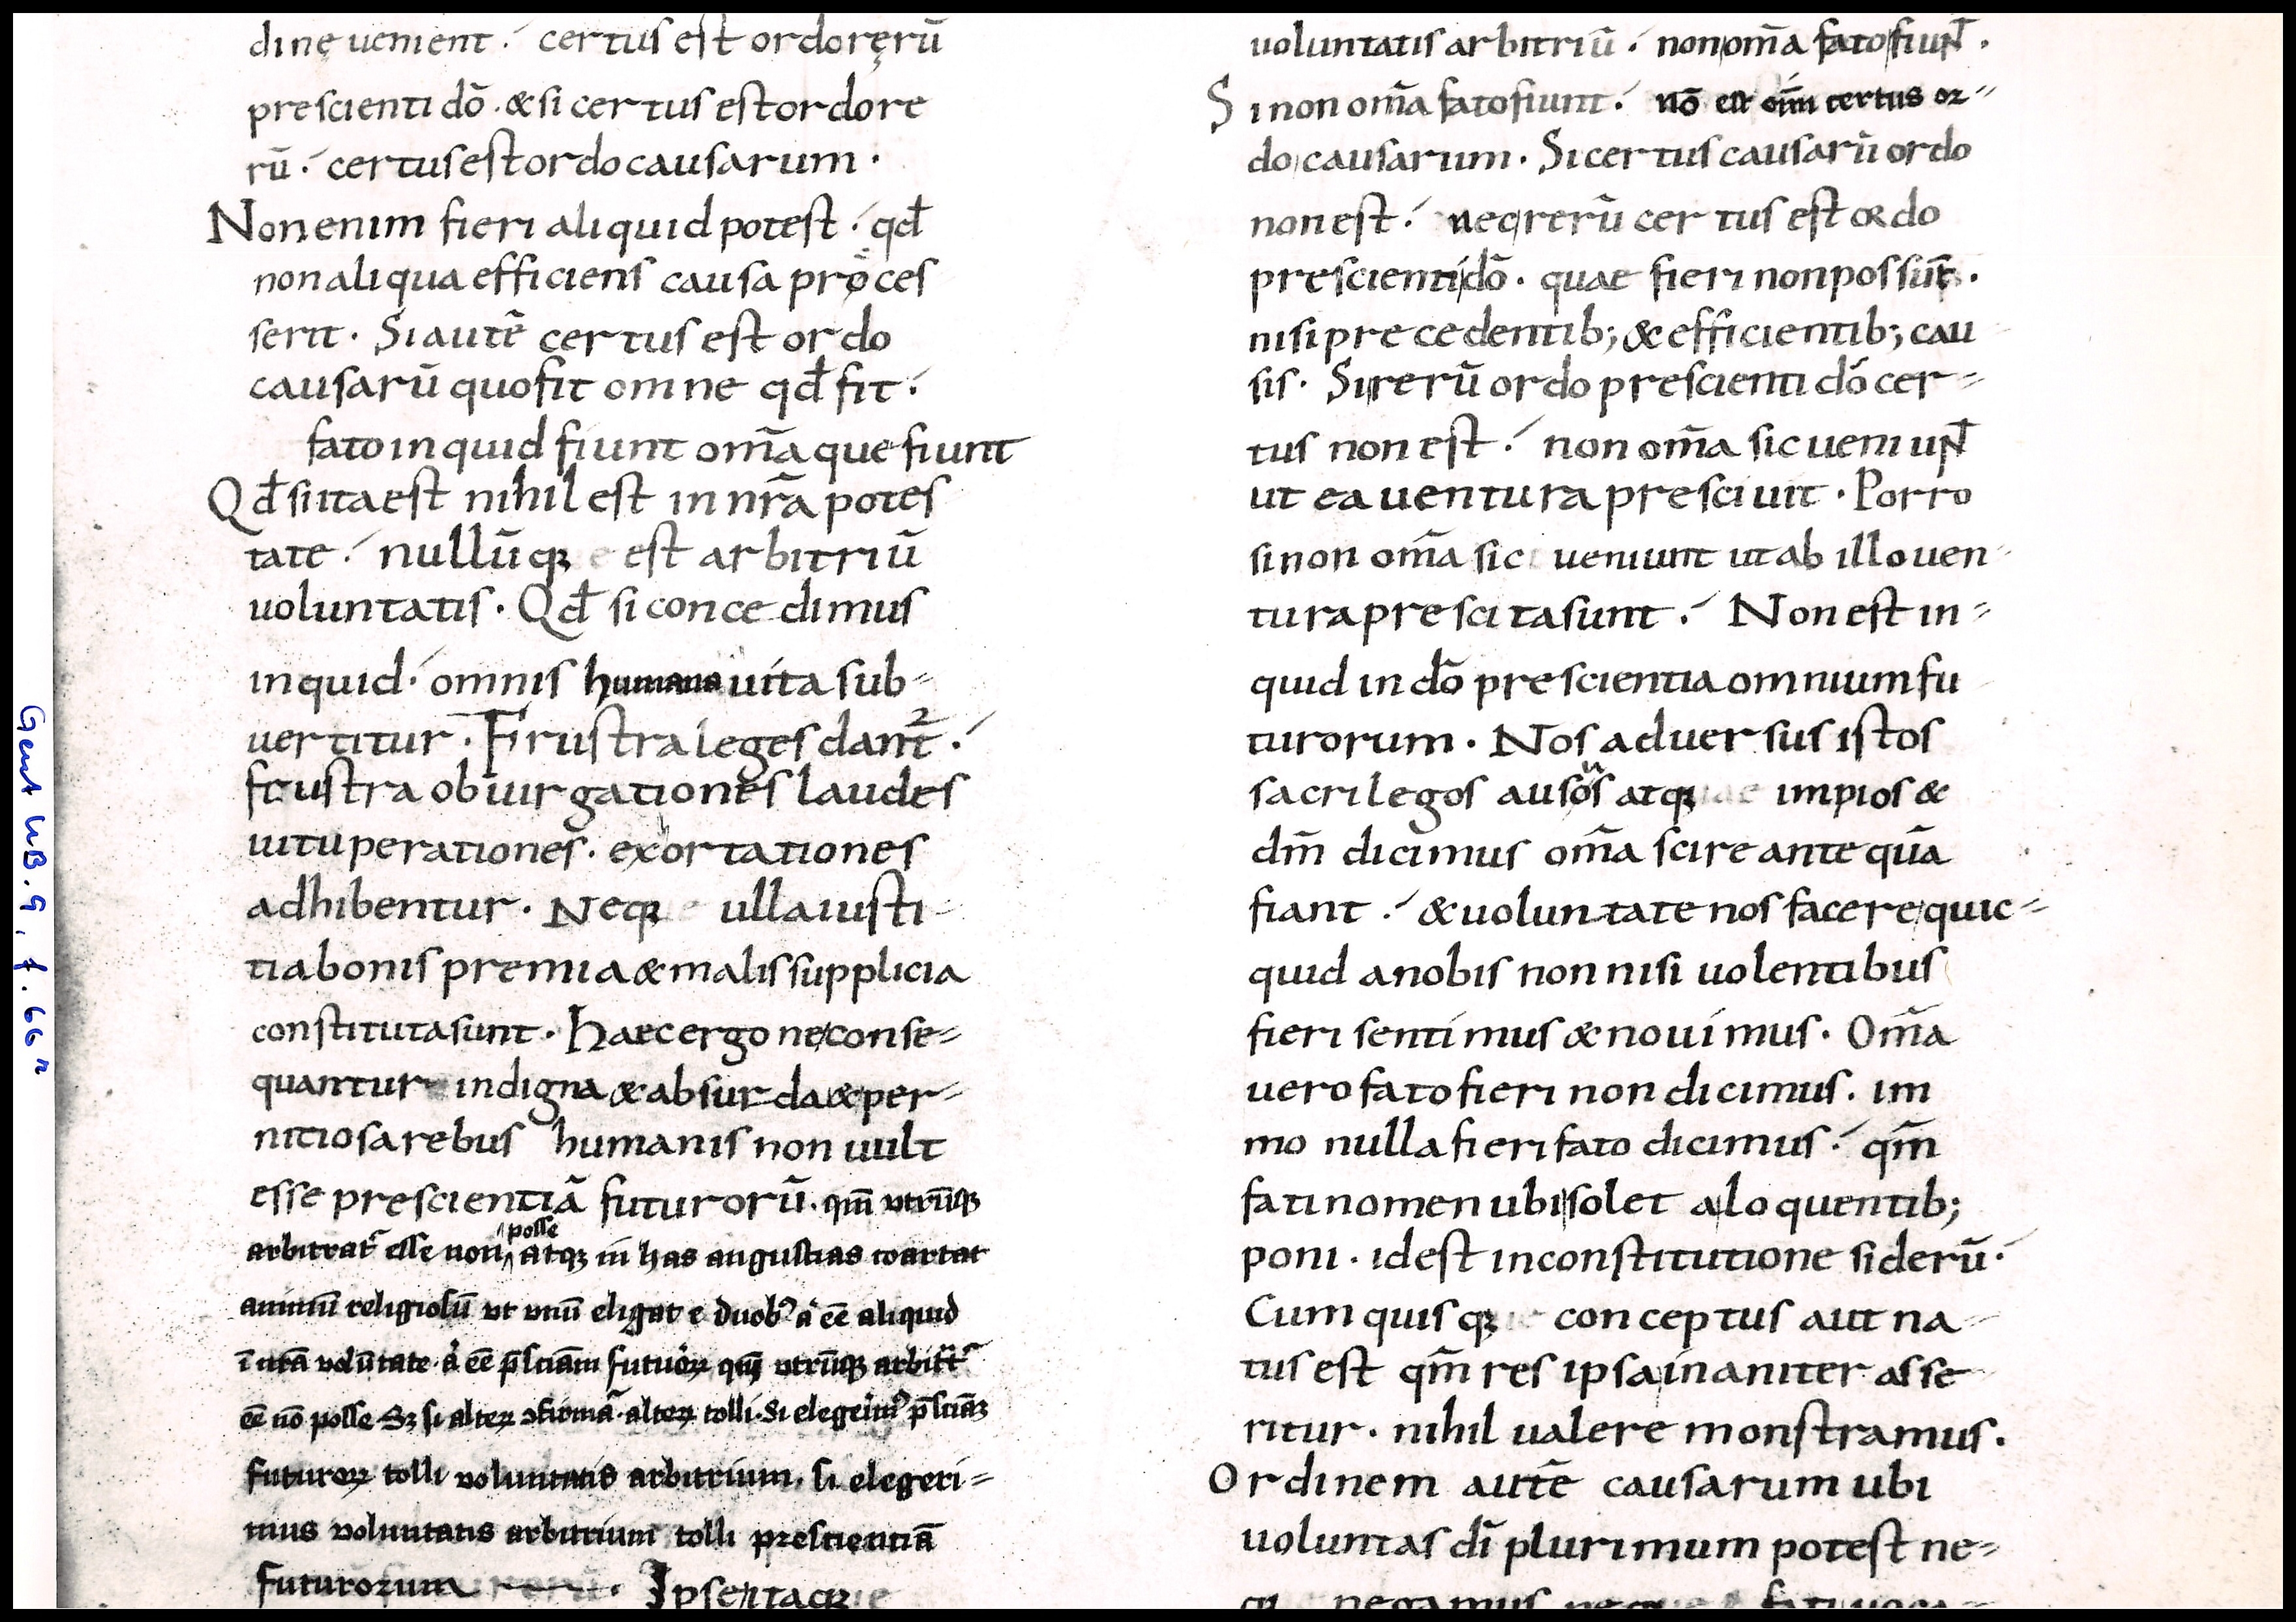 dinę uenient · certus est ordo ręrū
prescienti dō · & si certus est ordo re
rū · certus est ordo causarum ·
Non enim fieri aliquid potest · qđ
non aliqua efficiens causa proces
serit · Si autē certus est ordo
causarū quo fit omne qđ fit ·
fato inquid fiunt om̄a que fiunt
Qđ si ita est nihil est in nr̄a potes
tate · nullūq; est arbitriū
uoluntatis · Qđ si concedimus
inquid · omnis humana uita sub-
uertitur · Frustra leges dant̄ ·
frustra obiurgationes laudes
uituperationes · exortationes
adhibentur · Neq; ulla iusti-
tia bonis premia & malis supplicia
constituta sunt · Haec ergo ne conse-
quantur indigna & absurda & per-
nitiosa rebus humanis non uult
esse prescientiā futurorū · qm̄ vtrūq;
arbitrat̄ esse non posse atq; in has angustias coartat
animū religiosū vt vnū eligat e duob⁹ a᷒ eē aliquid
ī nrā volūtate · a᷒ eē p̄sciam futuroꝝ qm̄ vtrūq; arbitt̄
eē nō posse Sꝫ si alteꝝ ↄfirmat̄ · alteꝝ tolli · Si elegerim⁹ p̄sciāꝫ
futuroꝝ tolli voluntatis arbitrium · si elegeri-
mus voluntatis arbitrium tolli prescientiā
futurorum · Ipse itaq;
uoluntatis arbitriū · non om̄a fato fiunt ·
Si non om̄a fato fiunt · nō est om̄i certus or-
do causarum · Si certus causarū ordo
non est · neq; rerū certus est ordo
prescienti dō · quae fieri non possūt ·
nisi precedentib; & efficientib; cau
sis · Si rerū ordo prescienti dō cer-
tus non est · non om̄a sic ueniunt
ut ea uentura presciuit · Porro
si non om̄a sic ueniunt ut ab illo uen-
tura prescita sunt · Non est in-
quid in dō prescientia omnium fu
turorum · Nos aduersus istos
sacrilegos ausus atq; impios &
dm̄ dicimus om̄a scire ante quā
fiant · & uoluntate nos facere quic-
quid a nobis non nisi uolentibus
fieri sentimus & nouimus · Om̄a
uero fato fieri non dicimus · im
mo nulla fieri fato dicimus · qm̄
fati nomen ubi solet a loquentib;
poni · id est in constitutione siderū ·
Cum quisq; conceptus aut na-
tus est qm̄ res ipsa inaniter asse-
ritur · nihil ualere monstramus ·
Ordinem autē causarum ubi
uoluntas dī plurimum potest ne-
q; negamus neq; fati uoca-
Gent UB. 9, f. 66r